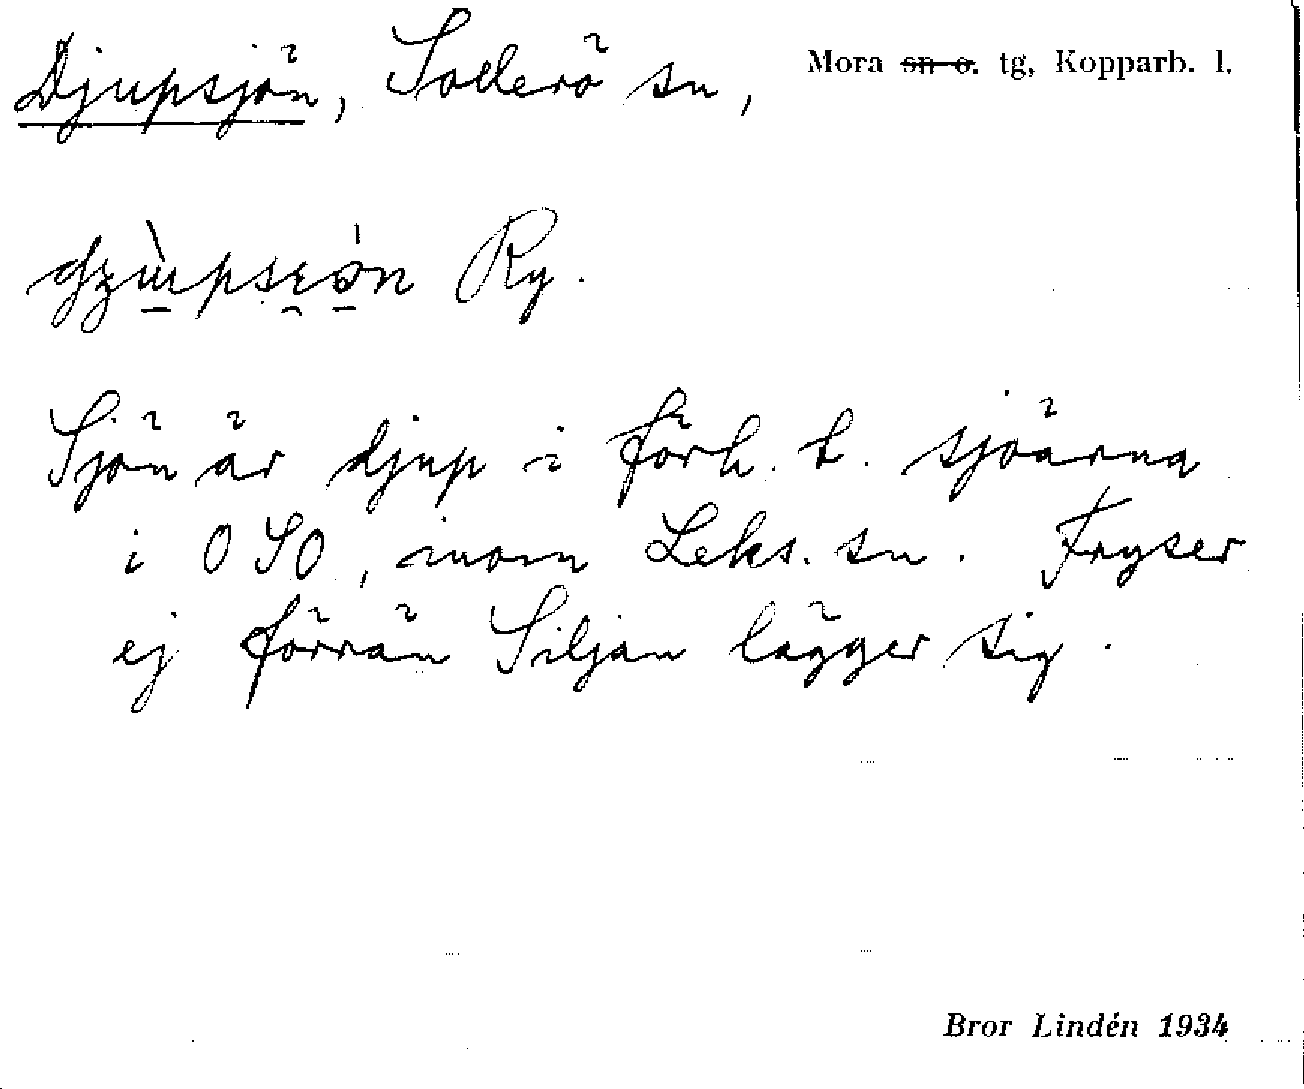 Djupsjön, Sollerö sn, Mora ~~sn o.~~ tg, Kopparb. l.
Ry.
Sjön är djup i förh. t. sjöarna
i OSO, inom Leks. sn. Fryser
ej förrän Siljan lägger sig.
Bror Lindén 1934